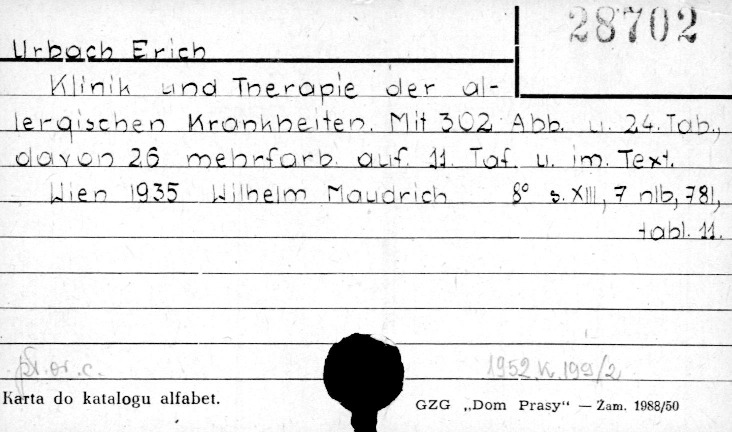 28702
Urbach Erich
Klinik und Therapie der al-
lergischen Krankheiten. Mit 302 Abb. u. 24. Tab.,
davon 26 mehrfarb. auf. 11. Taf. u. im. Text.
Wien 1935 Wilhelm Maudrich 8° s. XIII, 7 nlb, 781,
tabl. 11.
pr. or. c.
1952.K.199/2
Karta do katalogu alfabet.
GZG „Dom Prasy“ — Zam. 1988/50